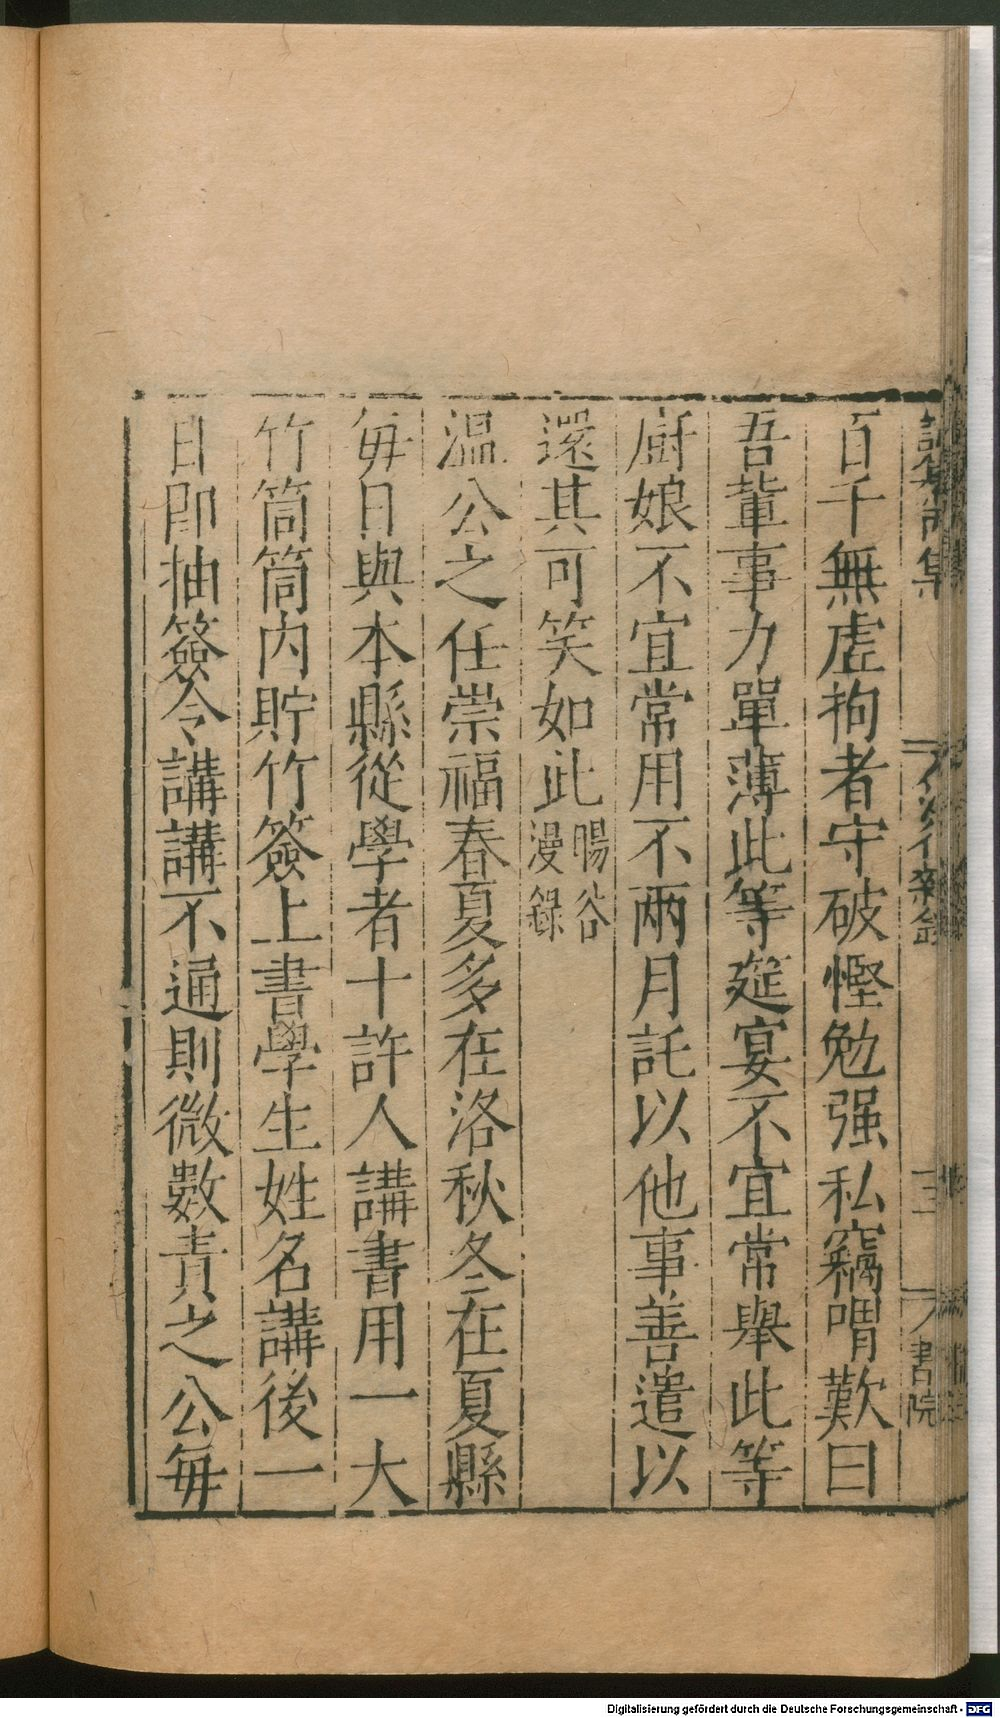 百千無虛拘者守破慳勉强私竊喟歎曰
吾輩事力單薄此等筵宴不宜常舉此等
厨娘不宜常用不兩月託以他事善遣以
還其可笑如此
暘谷
漫錄
温公之任崇福春夏多在洛秋冬在夏縣
每日與本縣從學者十許人講書用一大
竹筒筒内貯竹簽上書學生姓名講後一
日即抽簽令講講不通則微數責之公每
書院
Digitalisierung gefördert durch die Deutsche Forschungsgemeinschaft - DFG